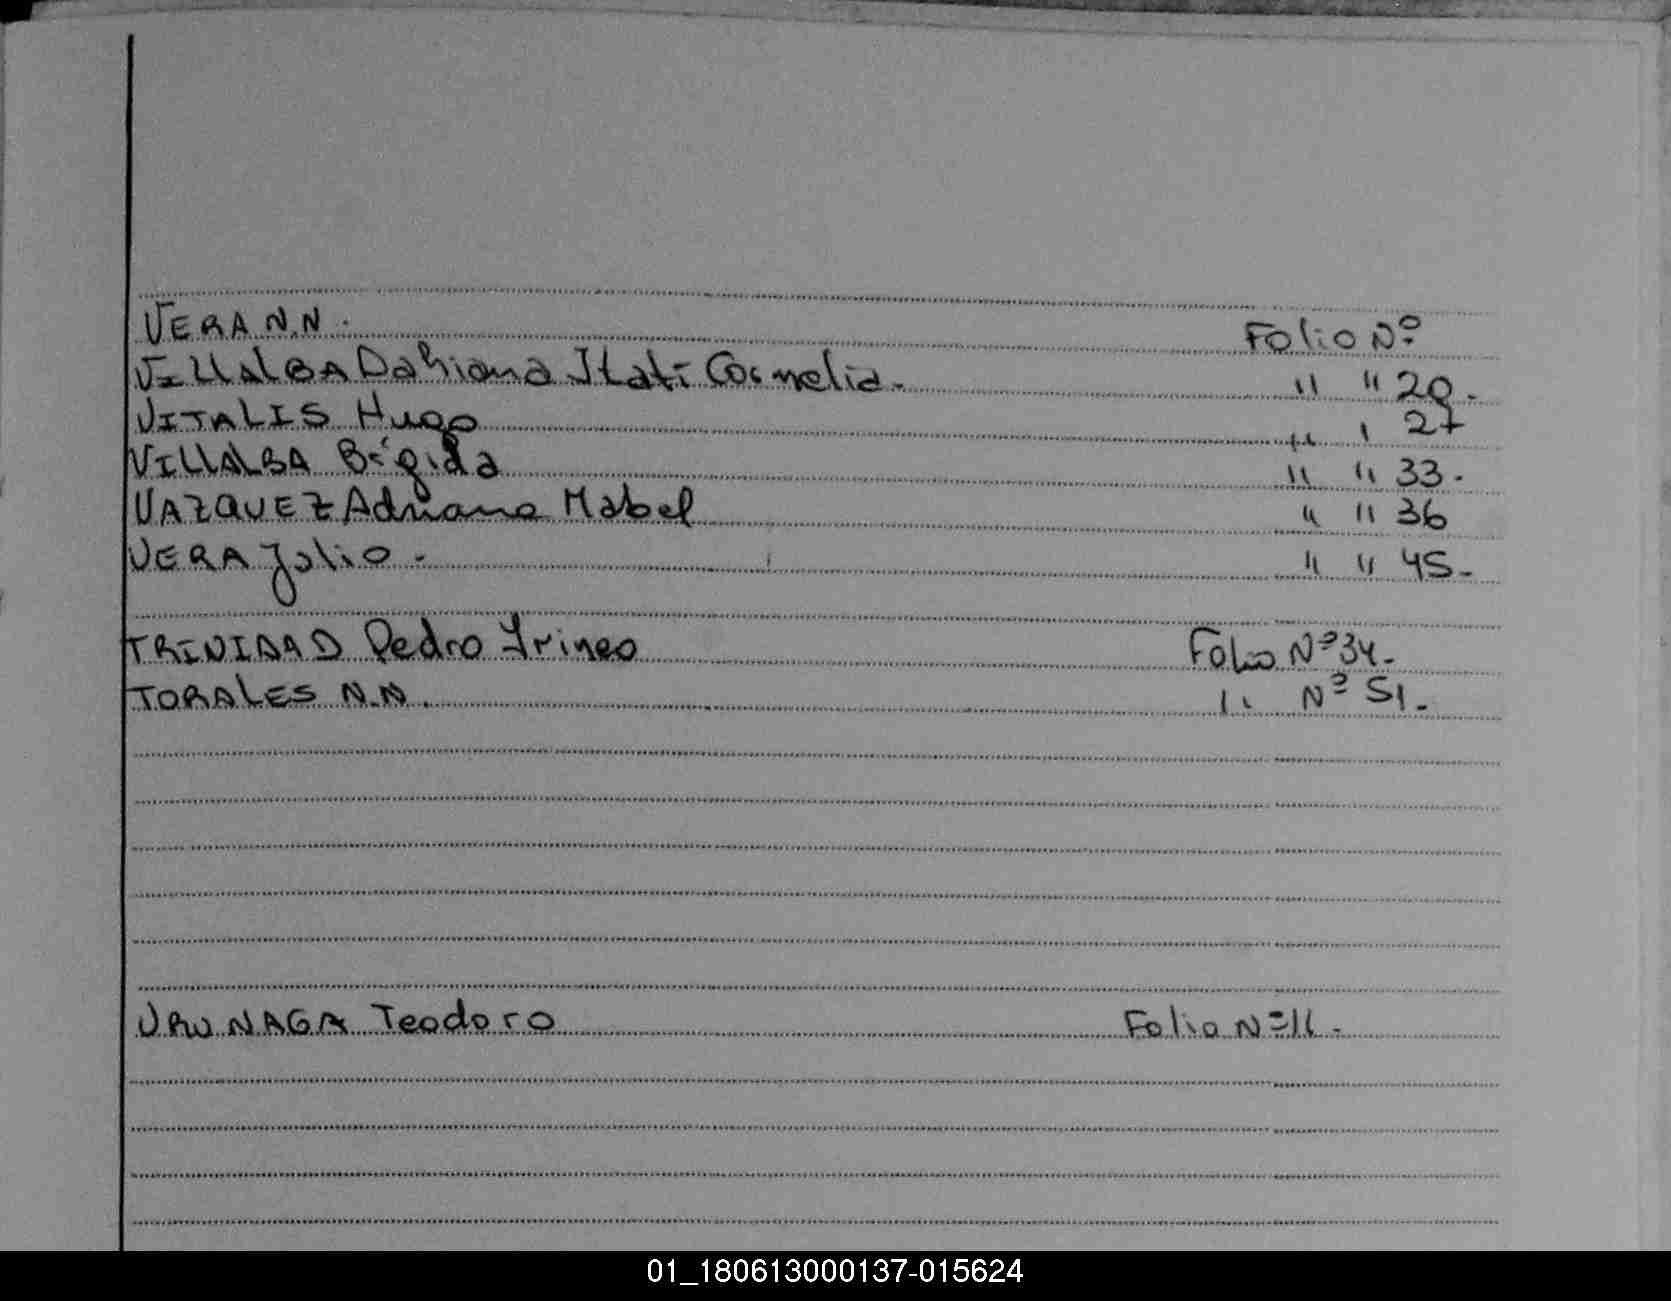 VERA N.N. Folio Nº
VILLALBA Dahiana Itatí Cornelia. " " 20.
VITALIS Hugo " " 27
VILLALBA Brígida " " 33.
VAZQUEZ Adriana Mabel " " 36
VERA Julio. " " 45.
TRINIDAD Pedro Irineo Folio Nº 34.
TORALES N.N. " Nº 51.
URUNAGA Teodoro Folio Nº 11.
01_180613000137-015624